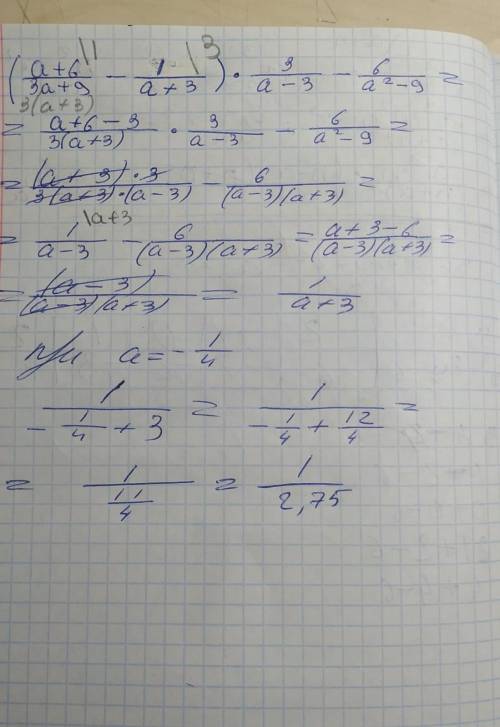 ((a+6)/(3a+9) \1 - 1/(a+3) \3) · 3/(a-3) - 6/(a²-9) =
3(a+3)
= (a+6-3)/(3(a+3)) · 3/(a-3) - 6/(a²-9) =
= ((a+3)·3)/(3(a+3)·(a-3)) - 6/((a-3)(a+3)) =
= 1/(a-3) \a+3 - 6/((a-3)(a+3)) = (a+3-6)/((a-3)(a+3)) =
= (a-3)/((a-3)(a+3)) = 1/(a+3)
при a = -1/4
1/(-1/4 + 3) = 1/(-1/4 + 12/4) =
= 1/(11/4) = 1/2,75